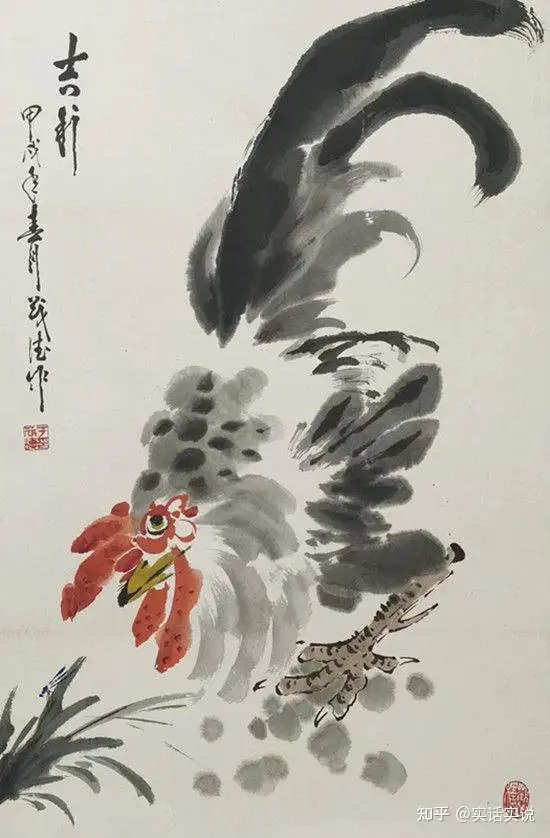 吉祥
甲戌年春月茂德作
知乎 @实话实说